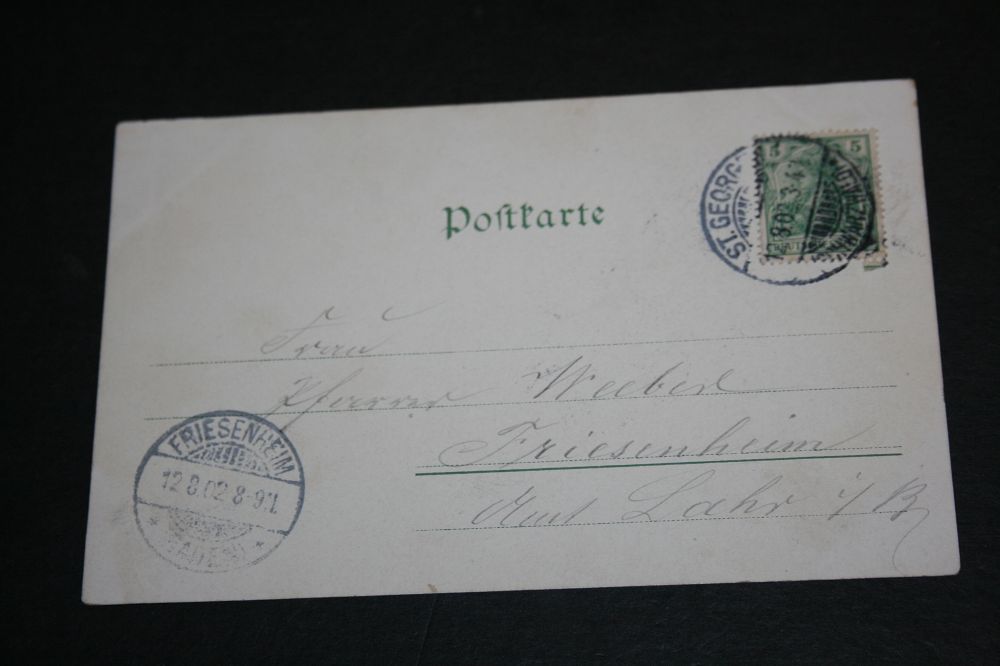 Postkarte
5 5
ST. GEORG
8.02. 3-4
Frau
Pfarrer Weeber
Friesenheim
Amt Lahr i/B
FRIESENHEIM
12.8.02.8-9V.
* (BADEN) *